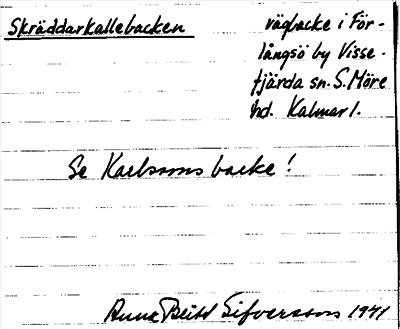 Skräddarkallebacken
vägbacke i För-
långsö by Visse-
fjärda sn. S. Möre
hd. Kalmar l.
Se Karlssons backe!
Anna Britt Sifversson 1941